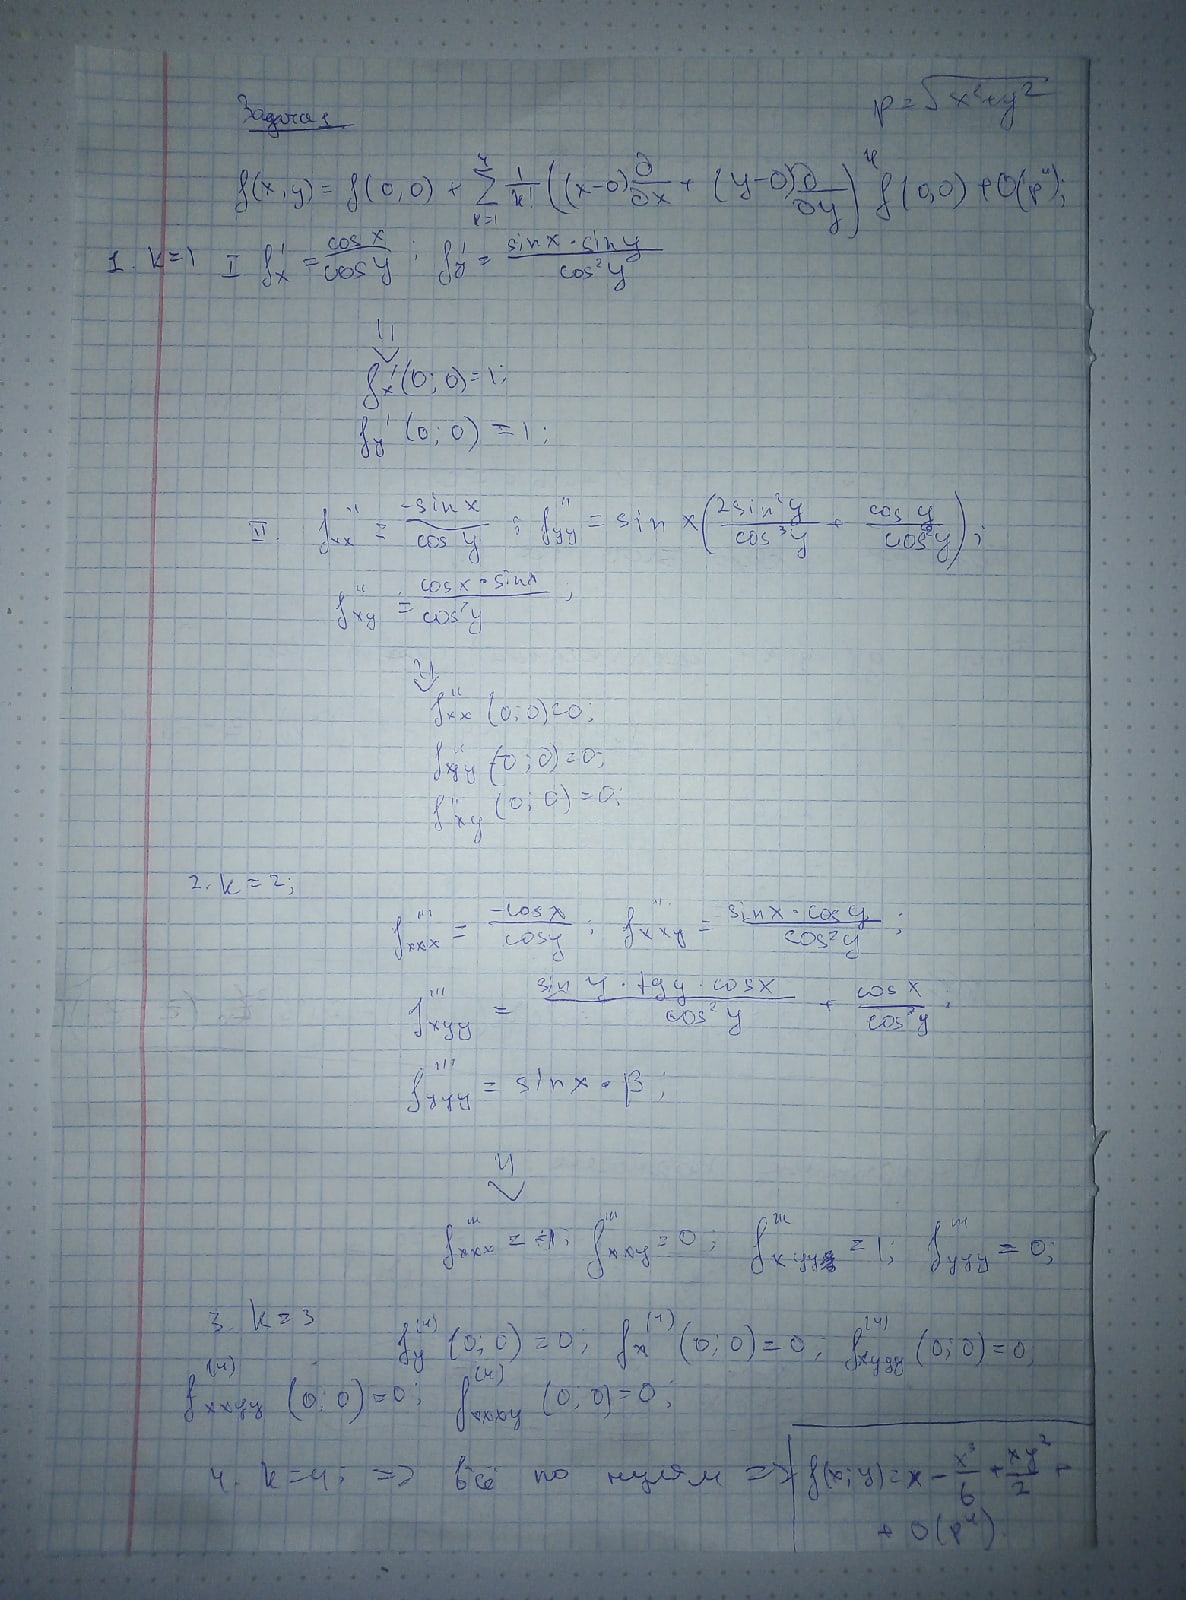 Задача 1
p = √(x²+y²)
f(x,y) = f(0,0) + ∑_{k=1}^{4} 1/k! ((x-0) ∂/∂x + (y-0) ∂/∂y)^4 f(0,0) + O(p⁴);
1. k=1 I f'_x = cos x / cos y ; f'_y = sin x · sin y / cos² y
⇓
f'_x (0; 0) = 1;
f'_y (0; 0) = 1;
II. f''_xx = -sin x / cos y ; f''_yy = sin x (2 sin² y / cos³ y + cos y / cos² y);
f''_xy = cos x · sin x / cos² y ;
⇓
f''_xx (0; 0) = 0;
f''_yy (0; 0) = 0;
f''_xy (0; 0) = 0;
2. k = 2;
f'''_xxx = -cos x / cos y ; f'''_xxy = sin x · cos y / cos² y ;
f'''_xyy = sin y · tg y · cos x / cos² y + cos x / cos² y ;
f'''_yyy = sin x · β ;
⇓
f'''_xxx = -1; f'''_xxy = 0; f'''_xyy = 1; f'''_yyy = 0;
3. k = 3
f^(4)_y (0; 0) = 0; f^(4)_x (0; 0) = 0; f^(4)_xyyy (0; 0) = 0
f^(4)_xxyy (0; 0) = 0; f^(4)_xxxy (0; 0) = 0;
4. k = 4; => всё по нулям => f(x; y) = x - x³/6 + xy²/2 +
+ O(p⁴)